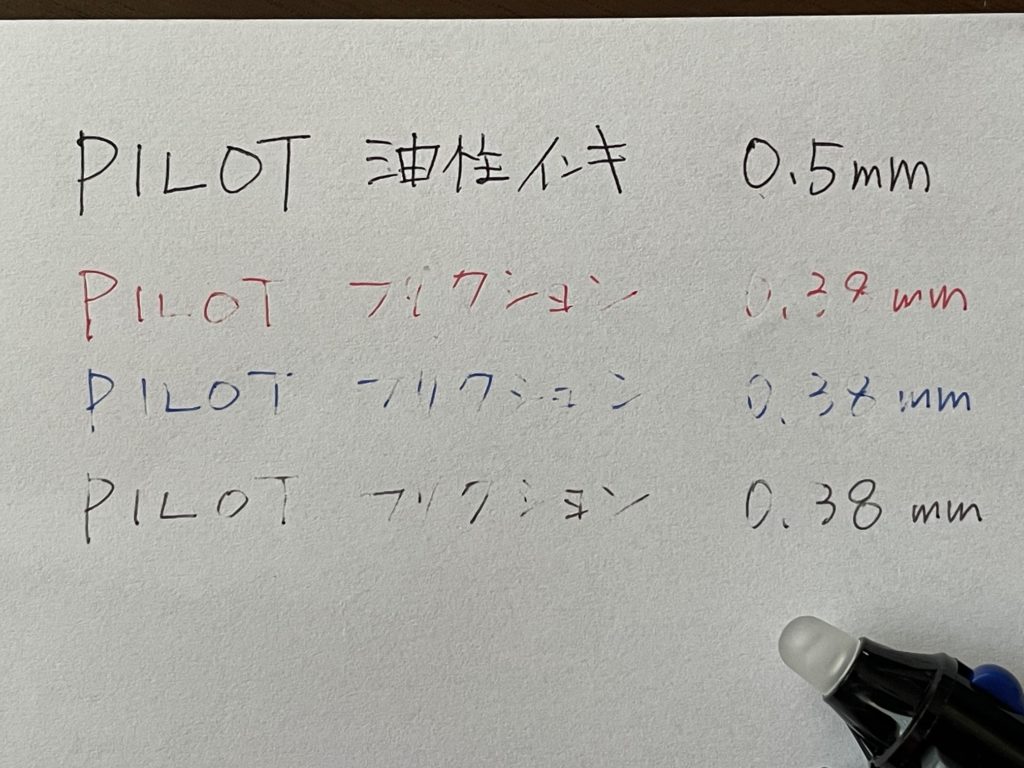 PILOT 油性インキ 0.5mm
PILOT フリクション 0.38mm
PILOT フリクション 0.38mm
PILOT フリクション 0.38mm